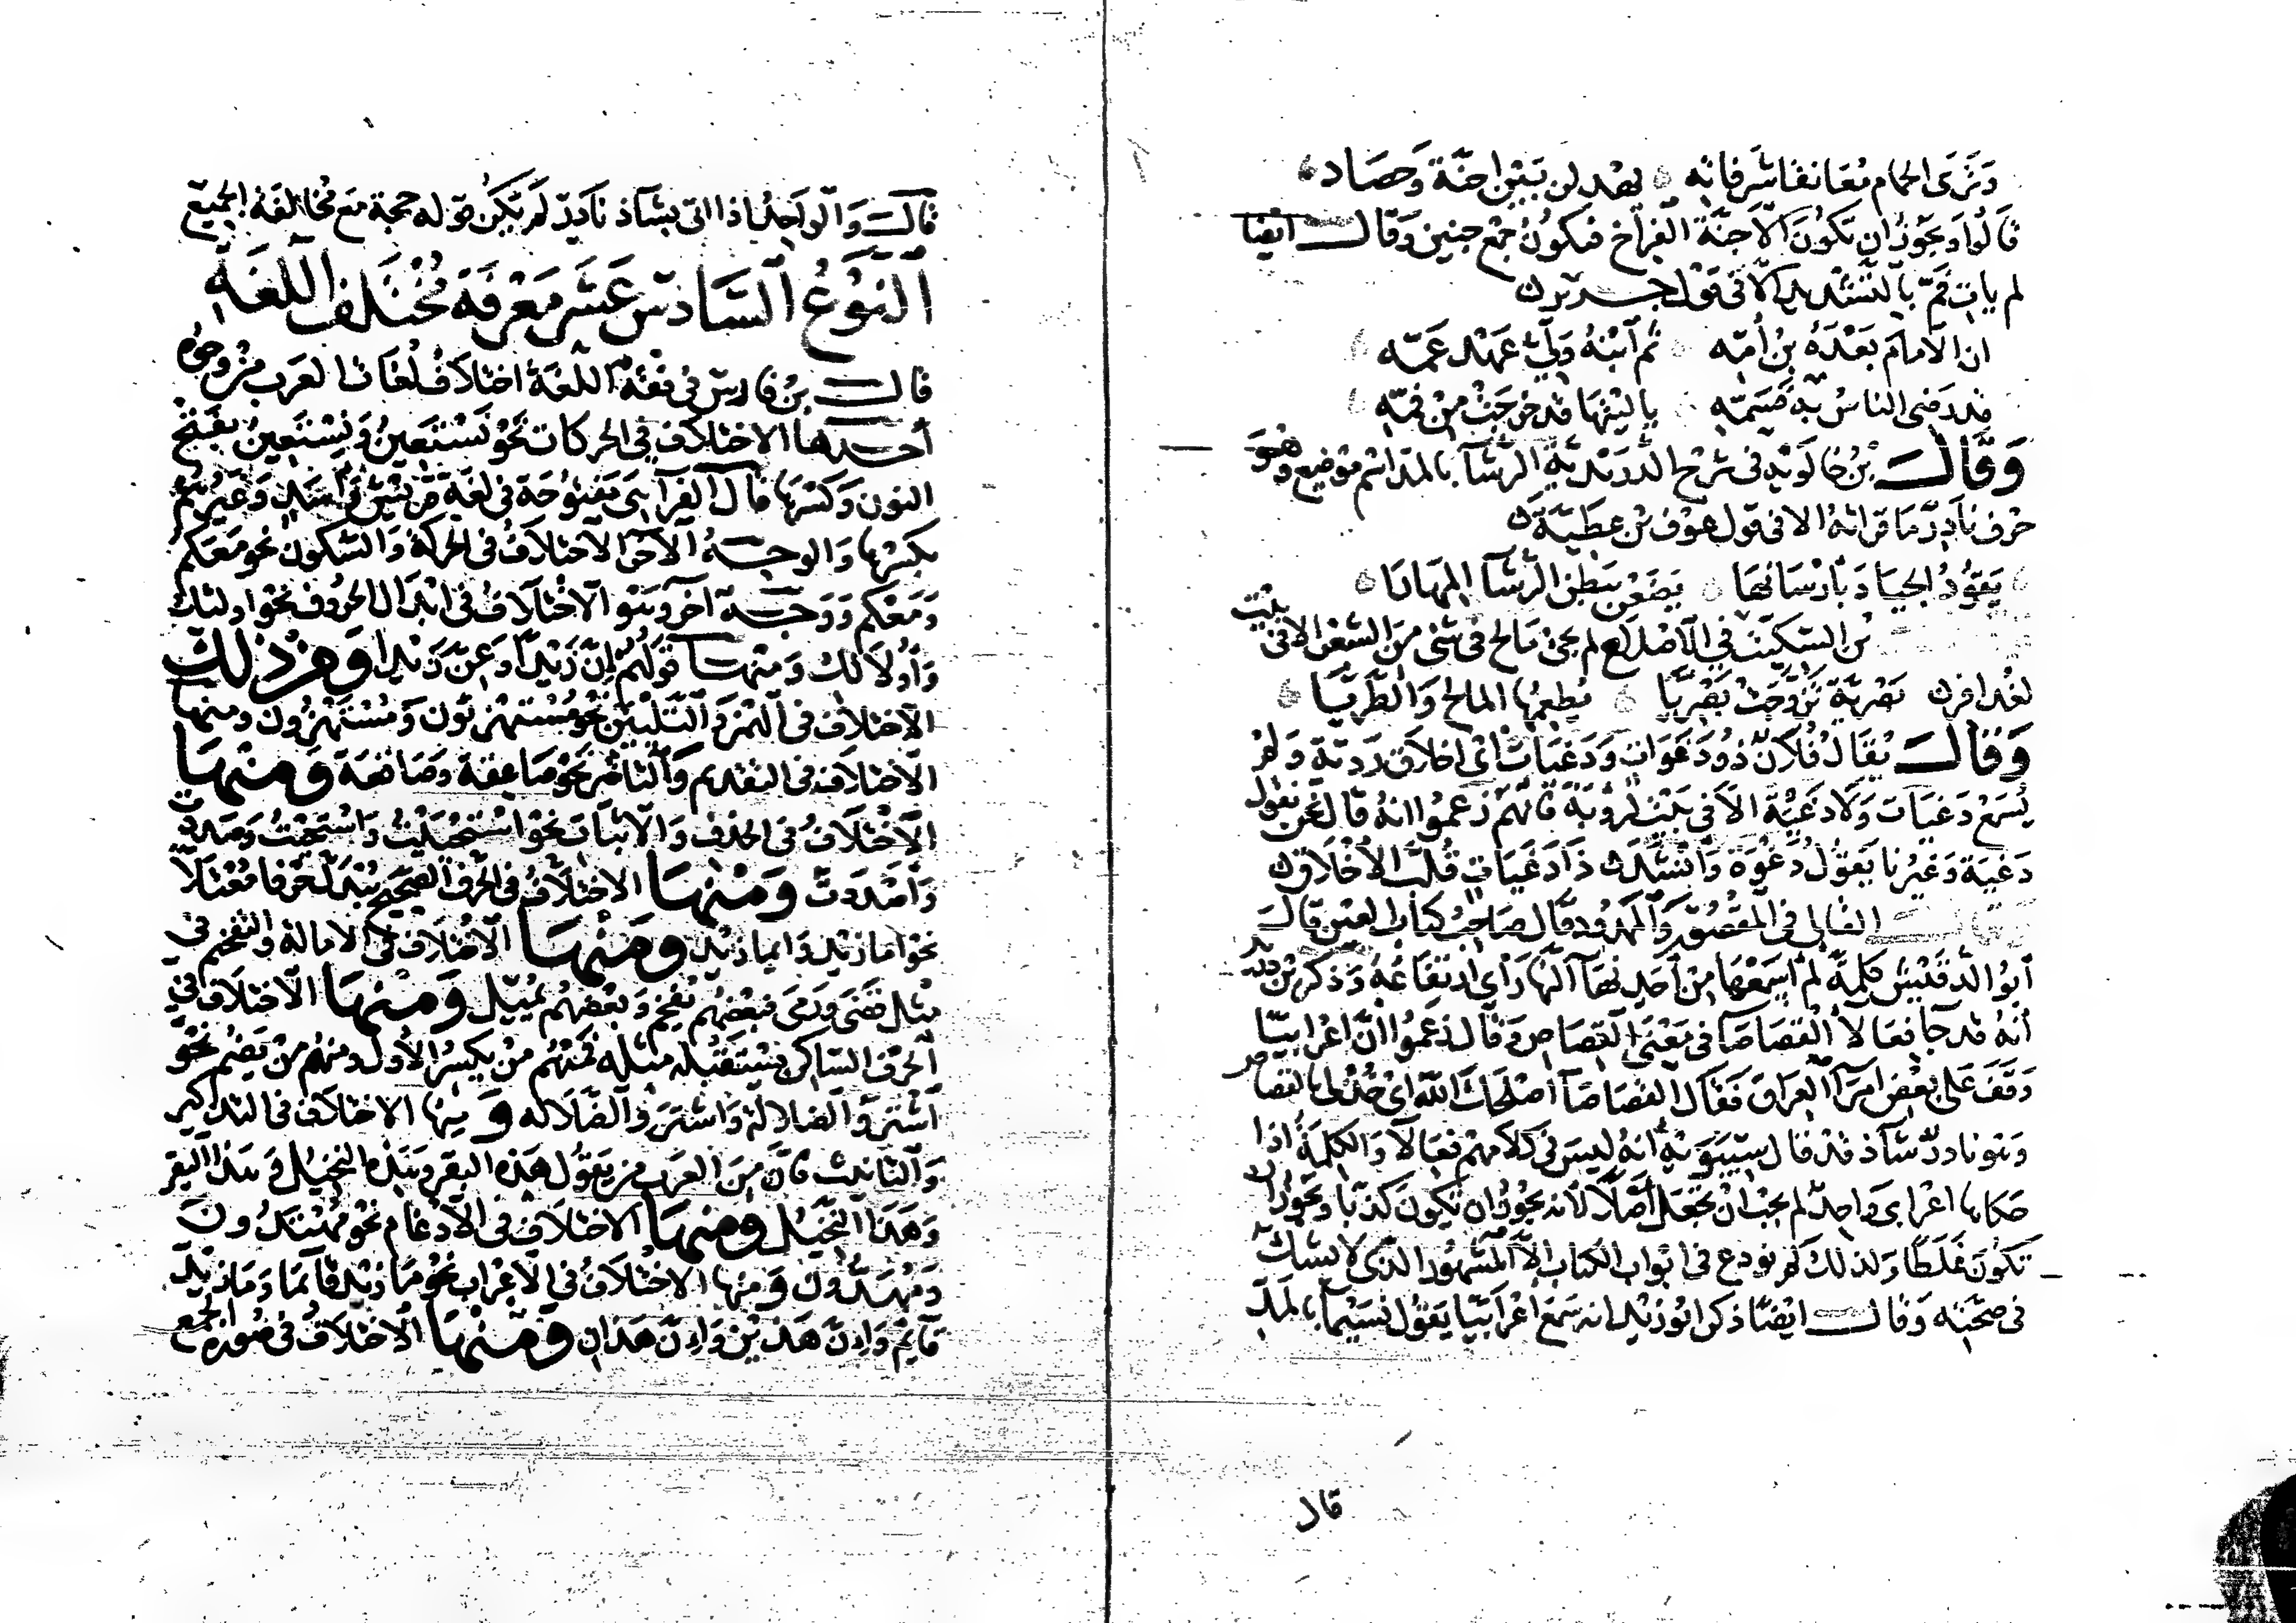 وترى الحمام معانقا شرفاته يهدلن بين اجنة وحصاد
قالوا ويجوز ان تكون الاجنة الفراخ فيكون جمع جنين وقال ايضا
لم يات فم بالتشديد الا في قول جرير
ان الامام بعده بن امه ثم ابنه ولي عهد عمه
قد رضي الناس به فسمه يا ليتها قد خرجت من فمه
وقال بن خالويه في شرح الدريدية الرشاء بالمد اسم موضع وهو
حرف نادر ما قراته الا في قول عوف بن عطية
يقود الجياد بارسانها يضعن ببطن الرشاء المهارا
بن السكيت في الاصلاح لم يجئ مالح في شئ من الشعر الا في بيت
لعذافر بصرية تزوجت بصريا يطعمها المالح والطريا
وقال يقال فلان ذو دغوات ودغيات اي اخلاق ردية ولم
يسمع دغيات ولا دغية الا في بيت لروبة فانهم زعموا انه قال نحن نقول
دغية وغيرنا يقول دغوة وانشدك ذا دغيات قلب الاخلاق
القالي في المقصور والممدود قال صاحب كتاب العين قال
ابو الدقيش كلمة لم اسمعها من احد نهاء النهار اي ارتفاعه وذكر بن دريد
انه قد جا فعالا القصاصا في معنى القصاص وقال زعموا ان اعرابيا
وقف على بعض امرا العراق فقال القصاصا اصلحك الله اي خذ لي القصاص
وهو نادر شاذ قد قال سيبويه انه ليس في كلامهم فعالا والكلمة اذا
حكاها اعرابي واحد لم يجب ان تجعل اصلا لانه يجوز ان تكون كذبا ويجوز ان
تكون غلطا ولذلك لم نودع في ابواب الكتاب الا المشهور الذي لا يشك
في صحته وقال ايضا ذكر ابو زيد انه سمع اعرابيا يقول نسيما بالمد
قال
قال والواحد اذا اتى بشاذ نادر لم يكن قوله حجة مع مخالفة الجميع
النوع السادس عشر معرفة مختلف اللغة
قال بن فارس في فقه اللغة اختلاف لغات العرب من وجوه
احدها الاختلاف في الحركات نحو نستعين ونستعين بفتح
النون وكسرها قال الفرا هي مفتوحة في لغة قريش واسد وغيرهم
بكسرها والوجه الاخر الاختلاف في الحركة والسكون نحو معكم
ومعكم ووجه اخر وهو الاختلاف في ابدال الحروف نحو اولئك
واولالك ومنها قولهم ان زيدا وعن زيدا ومن ذلك
الاختلاف في الهمز والتليين نحو مستهزئون ومستهزون ومنها
الاختلاف في التقديم والتاخير نحو صاعقة وصاقعة ومنها
الاختلاف في الحذف والاثبات نحو استحييت واستحيت وصددت
واصددت ومنها الاختلاف في الحرف الصحيح يبدل حرفا معتلا
نحو اما زيد وايما زيد ومنها الاختلاف في الامالة والتفخيم في
مثل قضى ورمى فبعضهم يفخم وبعضهم يميل ومنها الاختلاف في
الحرف الساكن يستقبله مثله فمنهم من يكسر الاول ومنهم من يضم نحو
اشتروا الضلالة واشتروا الضلاله ومنها الاختلاف في التذكير
والتانيث فان من العرب من يقول هذه البقر وهذه النخيل وهذا البقر
وهذا النخيل ومنها الاختلاف في الادغام نحو مهتدون
ومهدون ومنها الاختلاف في الاعراب نحو ما زيد قائما وما زيد
قائم وان هذين وان هذان ومنها الاختلاف في صورة الجمع